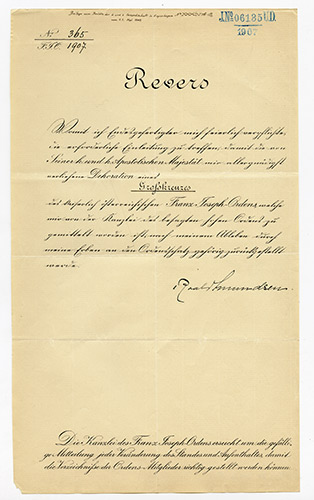 Nr. 365
F.J.O. 1907
J.№06135UD.
1907
Revers
Womit ich Endesgefertigter mich feierlich verpflichte,
die erforderliche Einleitung zu treffen, damit die von
Seiner k. und k. Apostolischen Majestät mir allergnädigst
verliehene Dekoration eines
Großkreuzes
des kaiserlich österreichischen Franz Joseph-Ordens, welche
mir von der Kanzlei des besagten hohen Ordens zu-
gemittelt worden ist, nach meinem Ableben durch
meine Erben an den Ordensschatz gehörig zurückgestellt
werde.
Roald Amundsen.
Die Kanzlei des Franz Joseph Ordens ersucht um die gefälli-
ge Mitteilung jeder Veränderung des Standes und Aufenthaltes, damit
die Verzeichnisse der Ordens-Mitglieder richtig gestellt werden können.